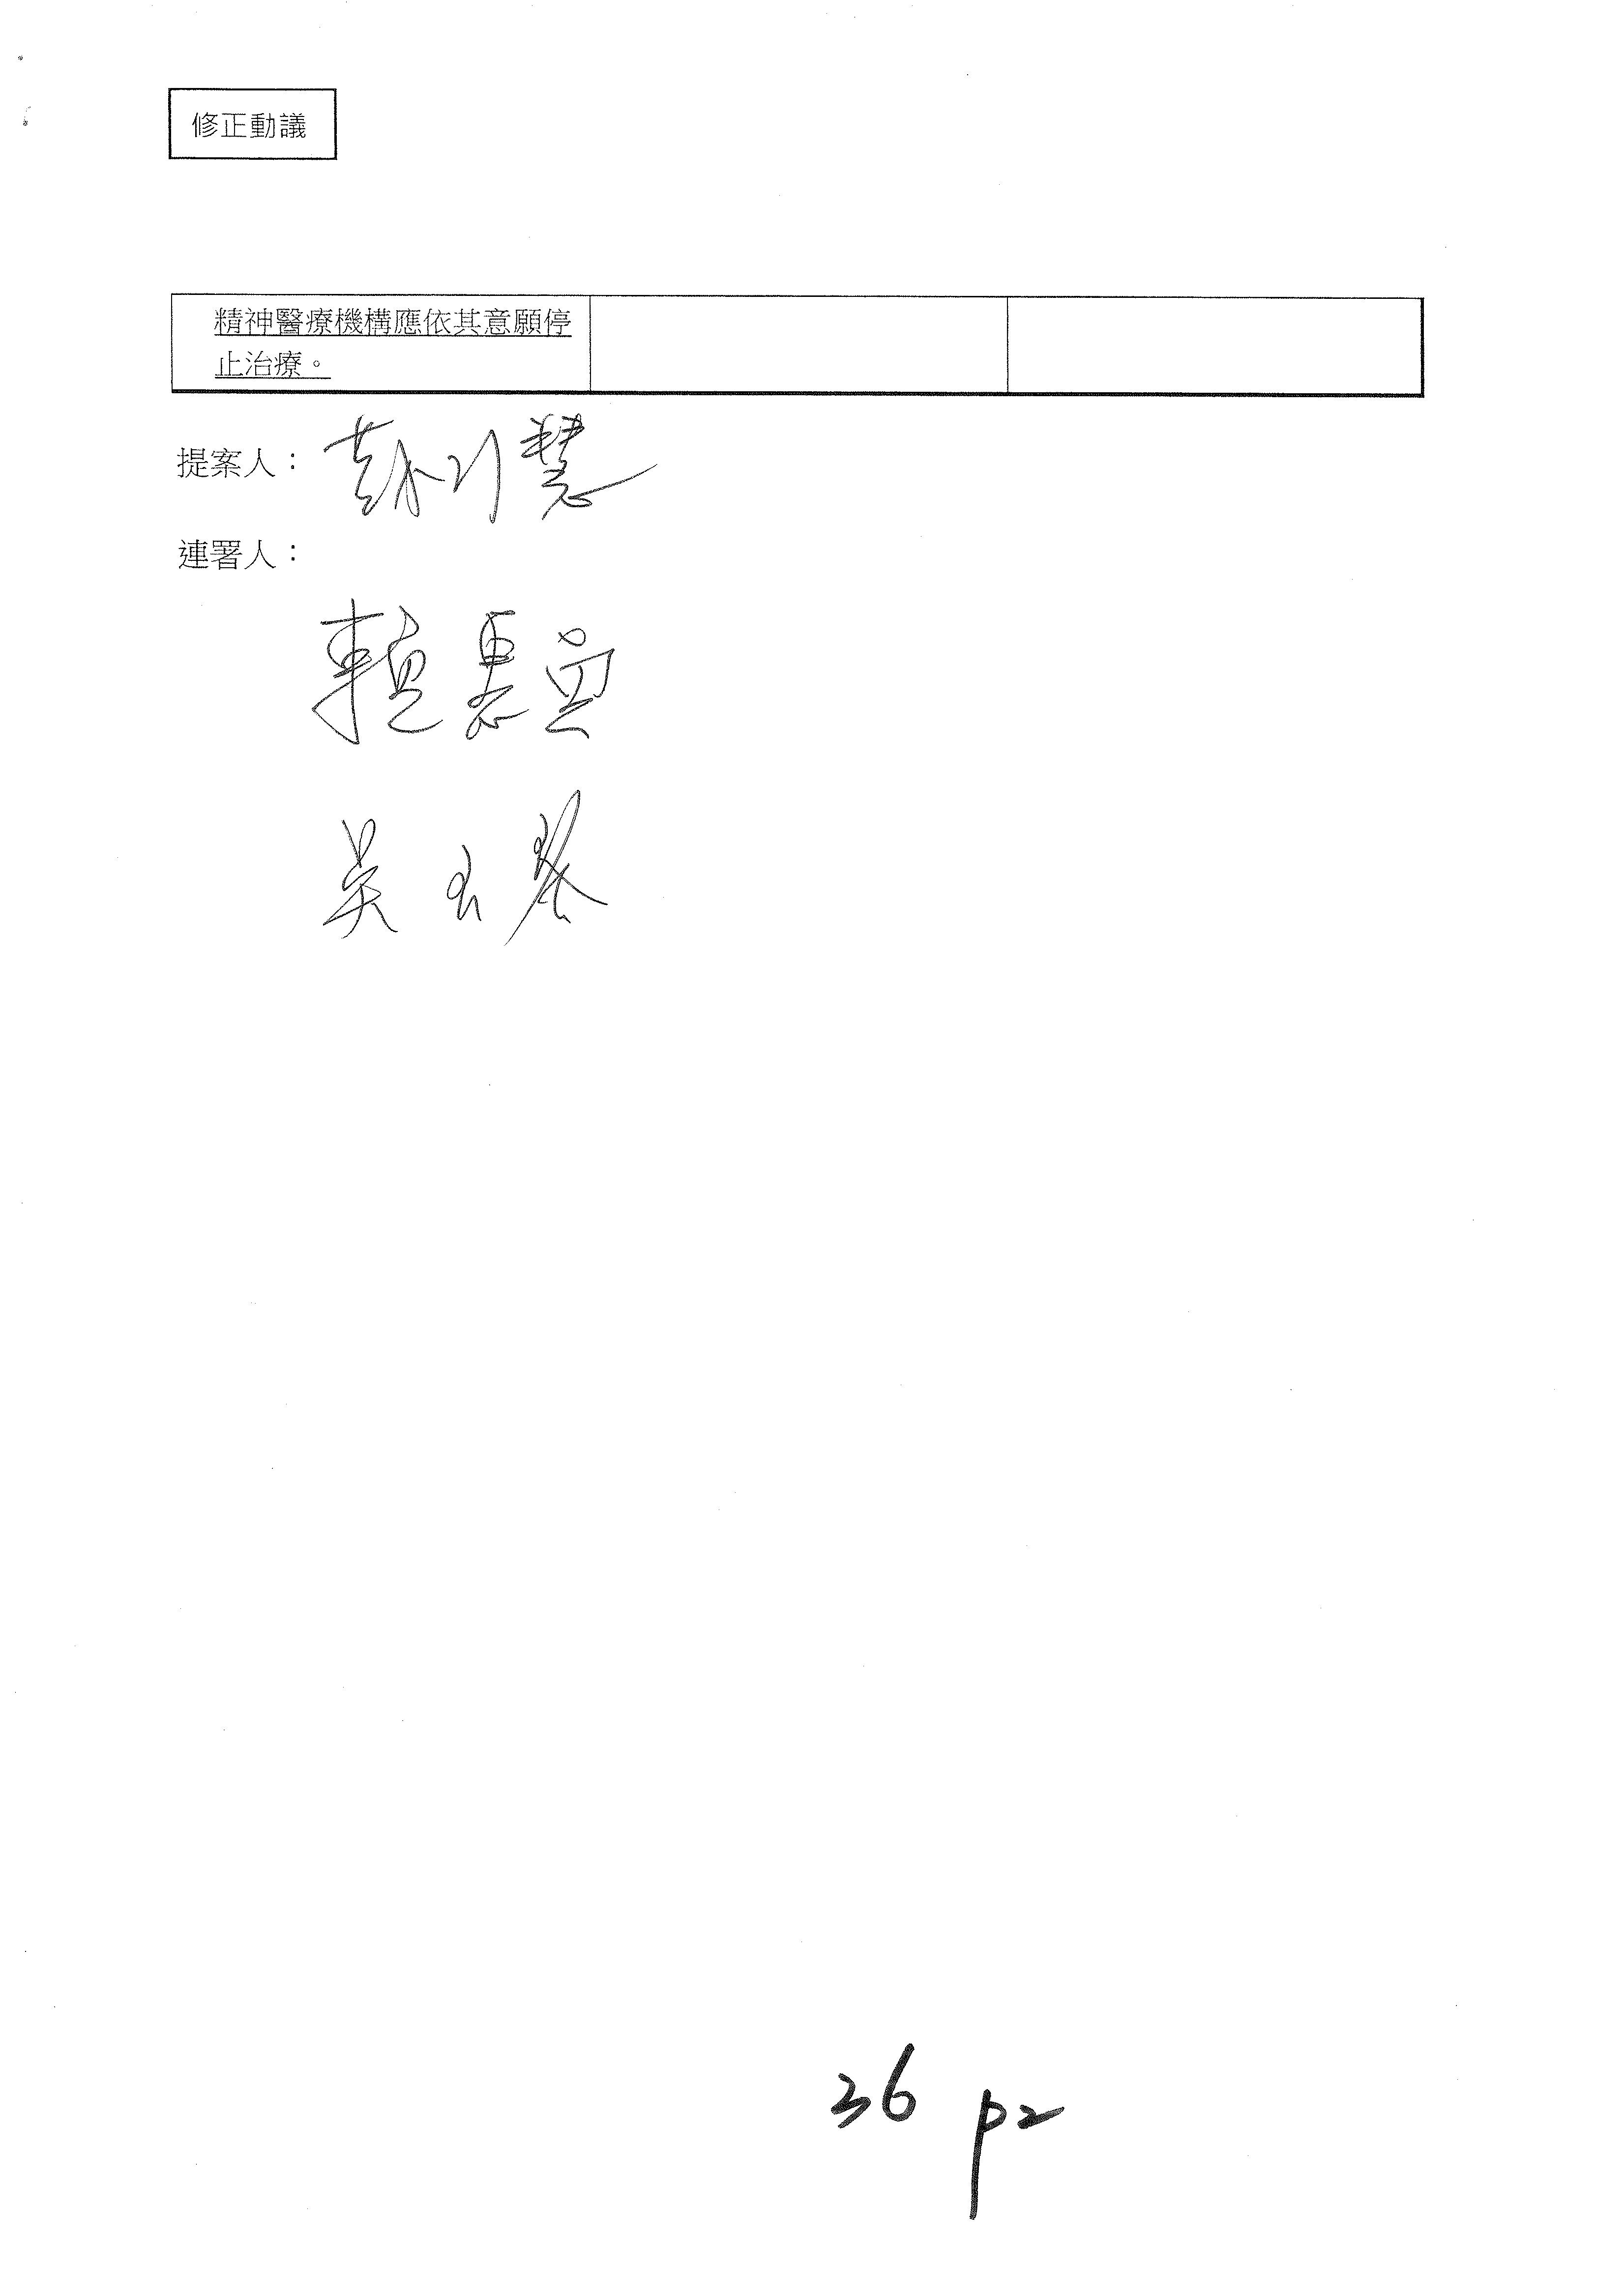 修正動議
精神醫療機構應依其意願停
止治療。
提案人：
連署人：
賴惠員
吳玉琴
36 p2